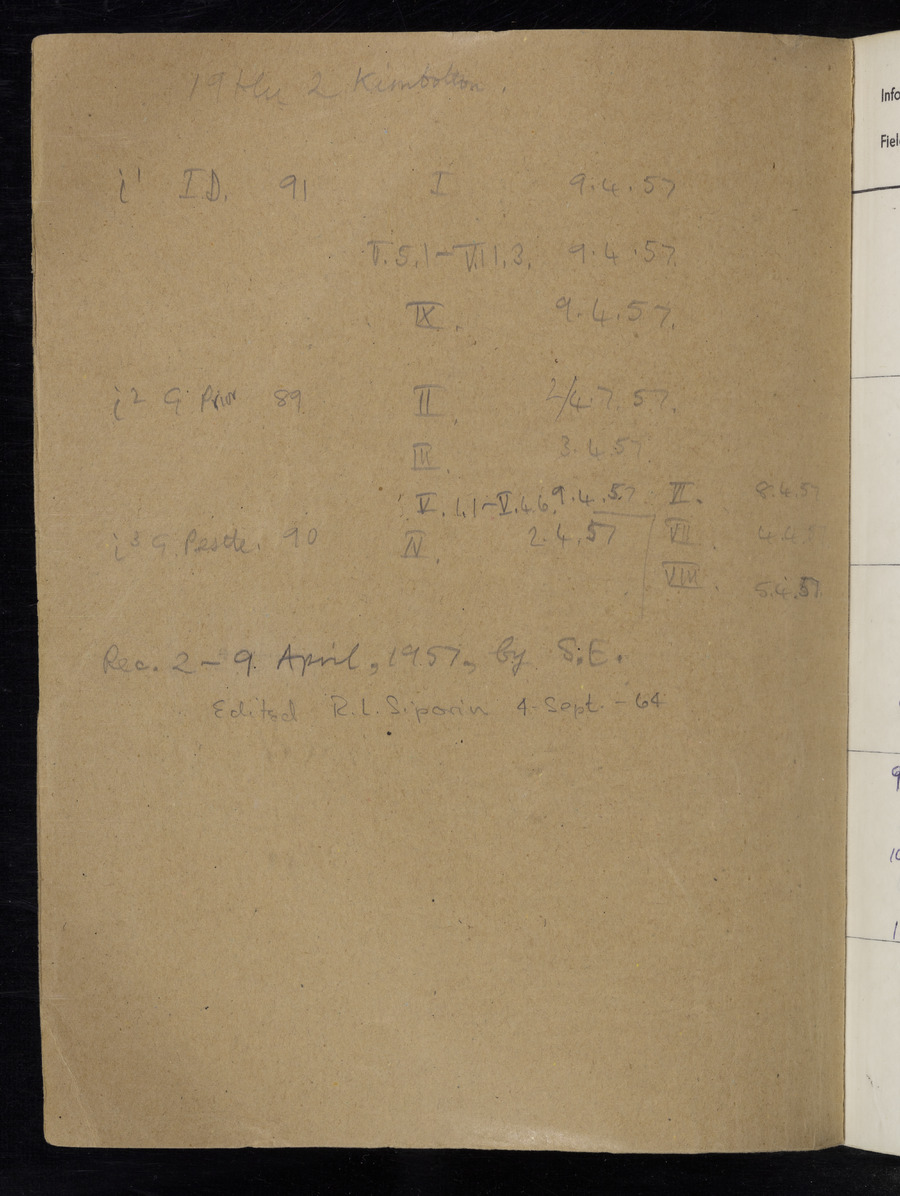 19 Hu 2 Kimbolton.
i¹ I.D. 91 I 9.4.57
V.5.1-VII.1.3. 9.4.57.
IX. 9.4.57.
i² G Prior 89. II. 2/4.7.57.
III. 3.4.57.
V.1.1-V.4.6. 9.4.57 VI. 8.4.57
i³ G. Pestle. 90 IV. 2.4.57 VII. 4.4.
VIII. 5.4.57.
Rec. 2-9. April, 1957, by S.E.
Edited R.L. Siporin 4-Sept.-64
Info
Fiel
9
10
1